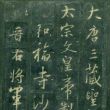 大唐三藏聖
太宗文皇帝製
弘福寺沙
晉右將軍